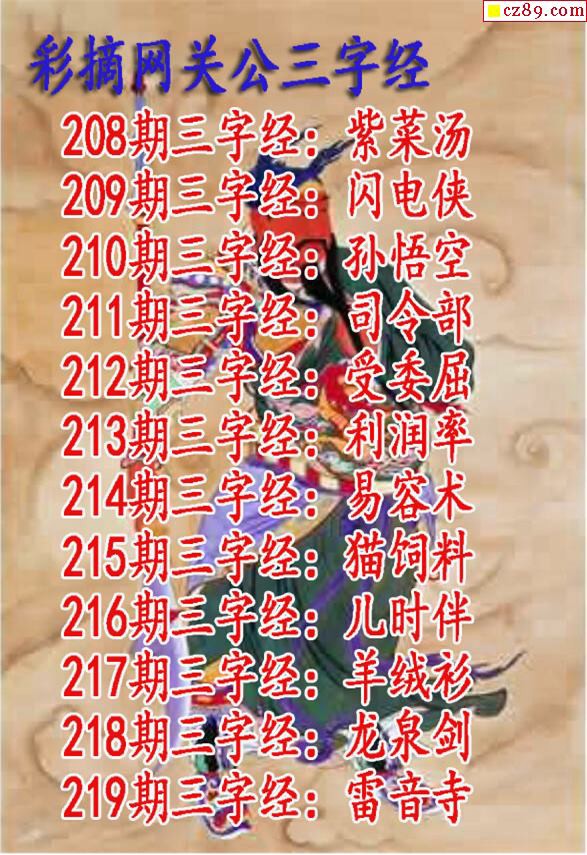 cz89.com
彩摘网关公三字经
208期三字经：紫菜汤
209期三字经：闪电侠
210期三字经：孙悟空
211期三字经：司令部
212期三字经：受委屈
213期三字经：利润率
214期三字经：易容术
215期三字经：猫饲料
216期三字经：儿时伴
217期三字经：羊绒衫
218期三字经：龙泉剑
219期三字经：雷音寺